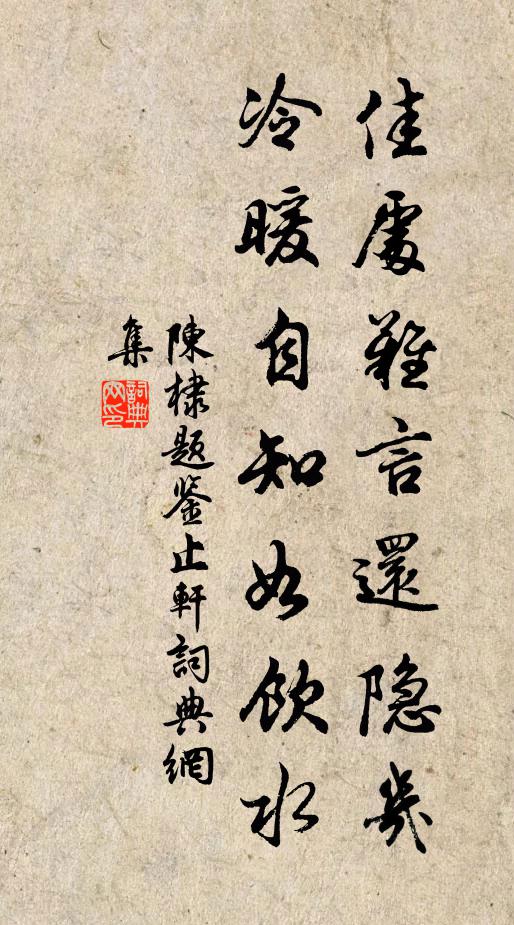 佳處難言還隐几
冷暖自知如飲水
陳棣題鉴止軒詞典網
集
詞典网印